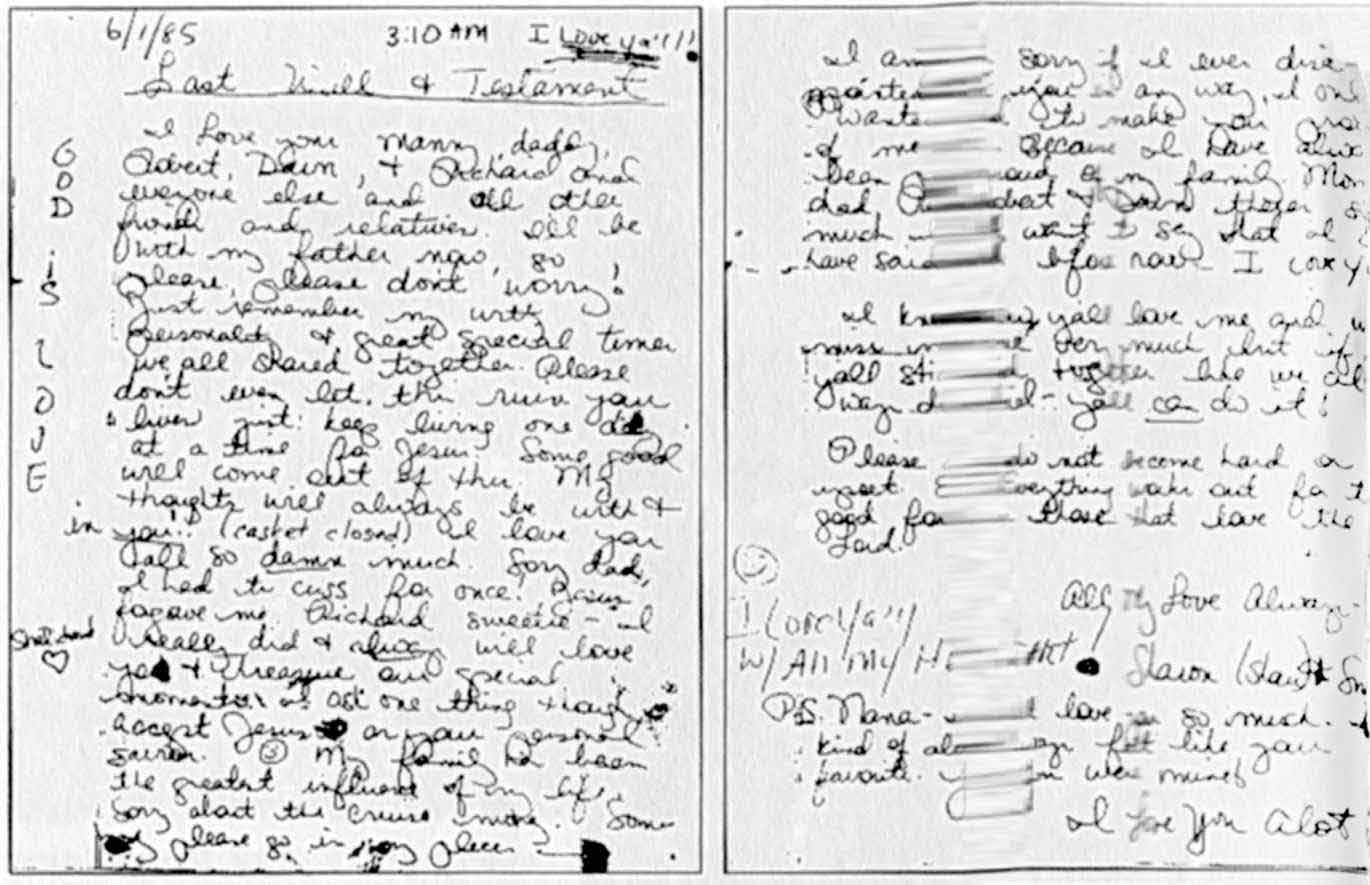 6/1/85 3:10 AM I Love ya'll!
Last Will & Testament
I Love you mommy, daddy,
Robert, Dawn, & Richard and
everyone else and all other
friends and relatives. I'll be
with my father now, so
please, please don't worry!
Just remember my witty
personality & great special times
we all shared together. Please
don't ever let this ruin your
lives just keep living one day
at a time for Jesus. Some good
will come out of this. My
thoughts will always be with &
in you. (casket closed) I love you
all so damn much. Sorry dad,
I had to cuss for once! Jesus
forgave me. Richard sweetie - I
really did & always will love
you & treasure our special
moments. I ask one thing though,
accept Jesus as your personal
savior. My family has been
the greatest influence of my life.
Sorry about the cruise money. Some
day please go in my place.
GOD
iS
LOVE
I am sorry if I ever disa-
pointed you in any way, I only
wanted to make you
of me because I have always
been proud of my family. Mom,
dad, Robert & Dawn there's so
much I want to say that I
have said before now. I love
I know y'all love me and
miss me very much but if
y'all stick together like we al-
ways did - y'all can do it!
Please do not become hard or
upset. Everything works out for
good for those that love the
Lord.
I Love Ya'll
w/ All My Heart
All My Love Always-
Sharon (Shari)
P.S. Nana- I love you so much. I
kind of always felt like your
favorite. You were mine!
I Love You Alot